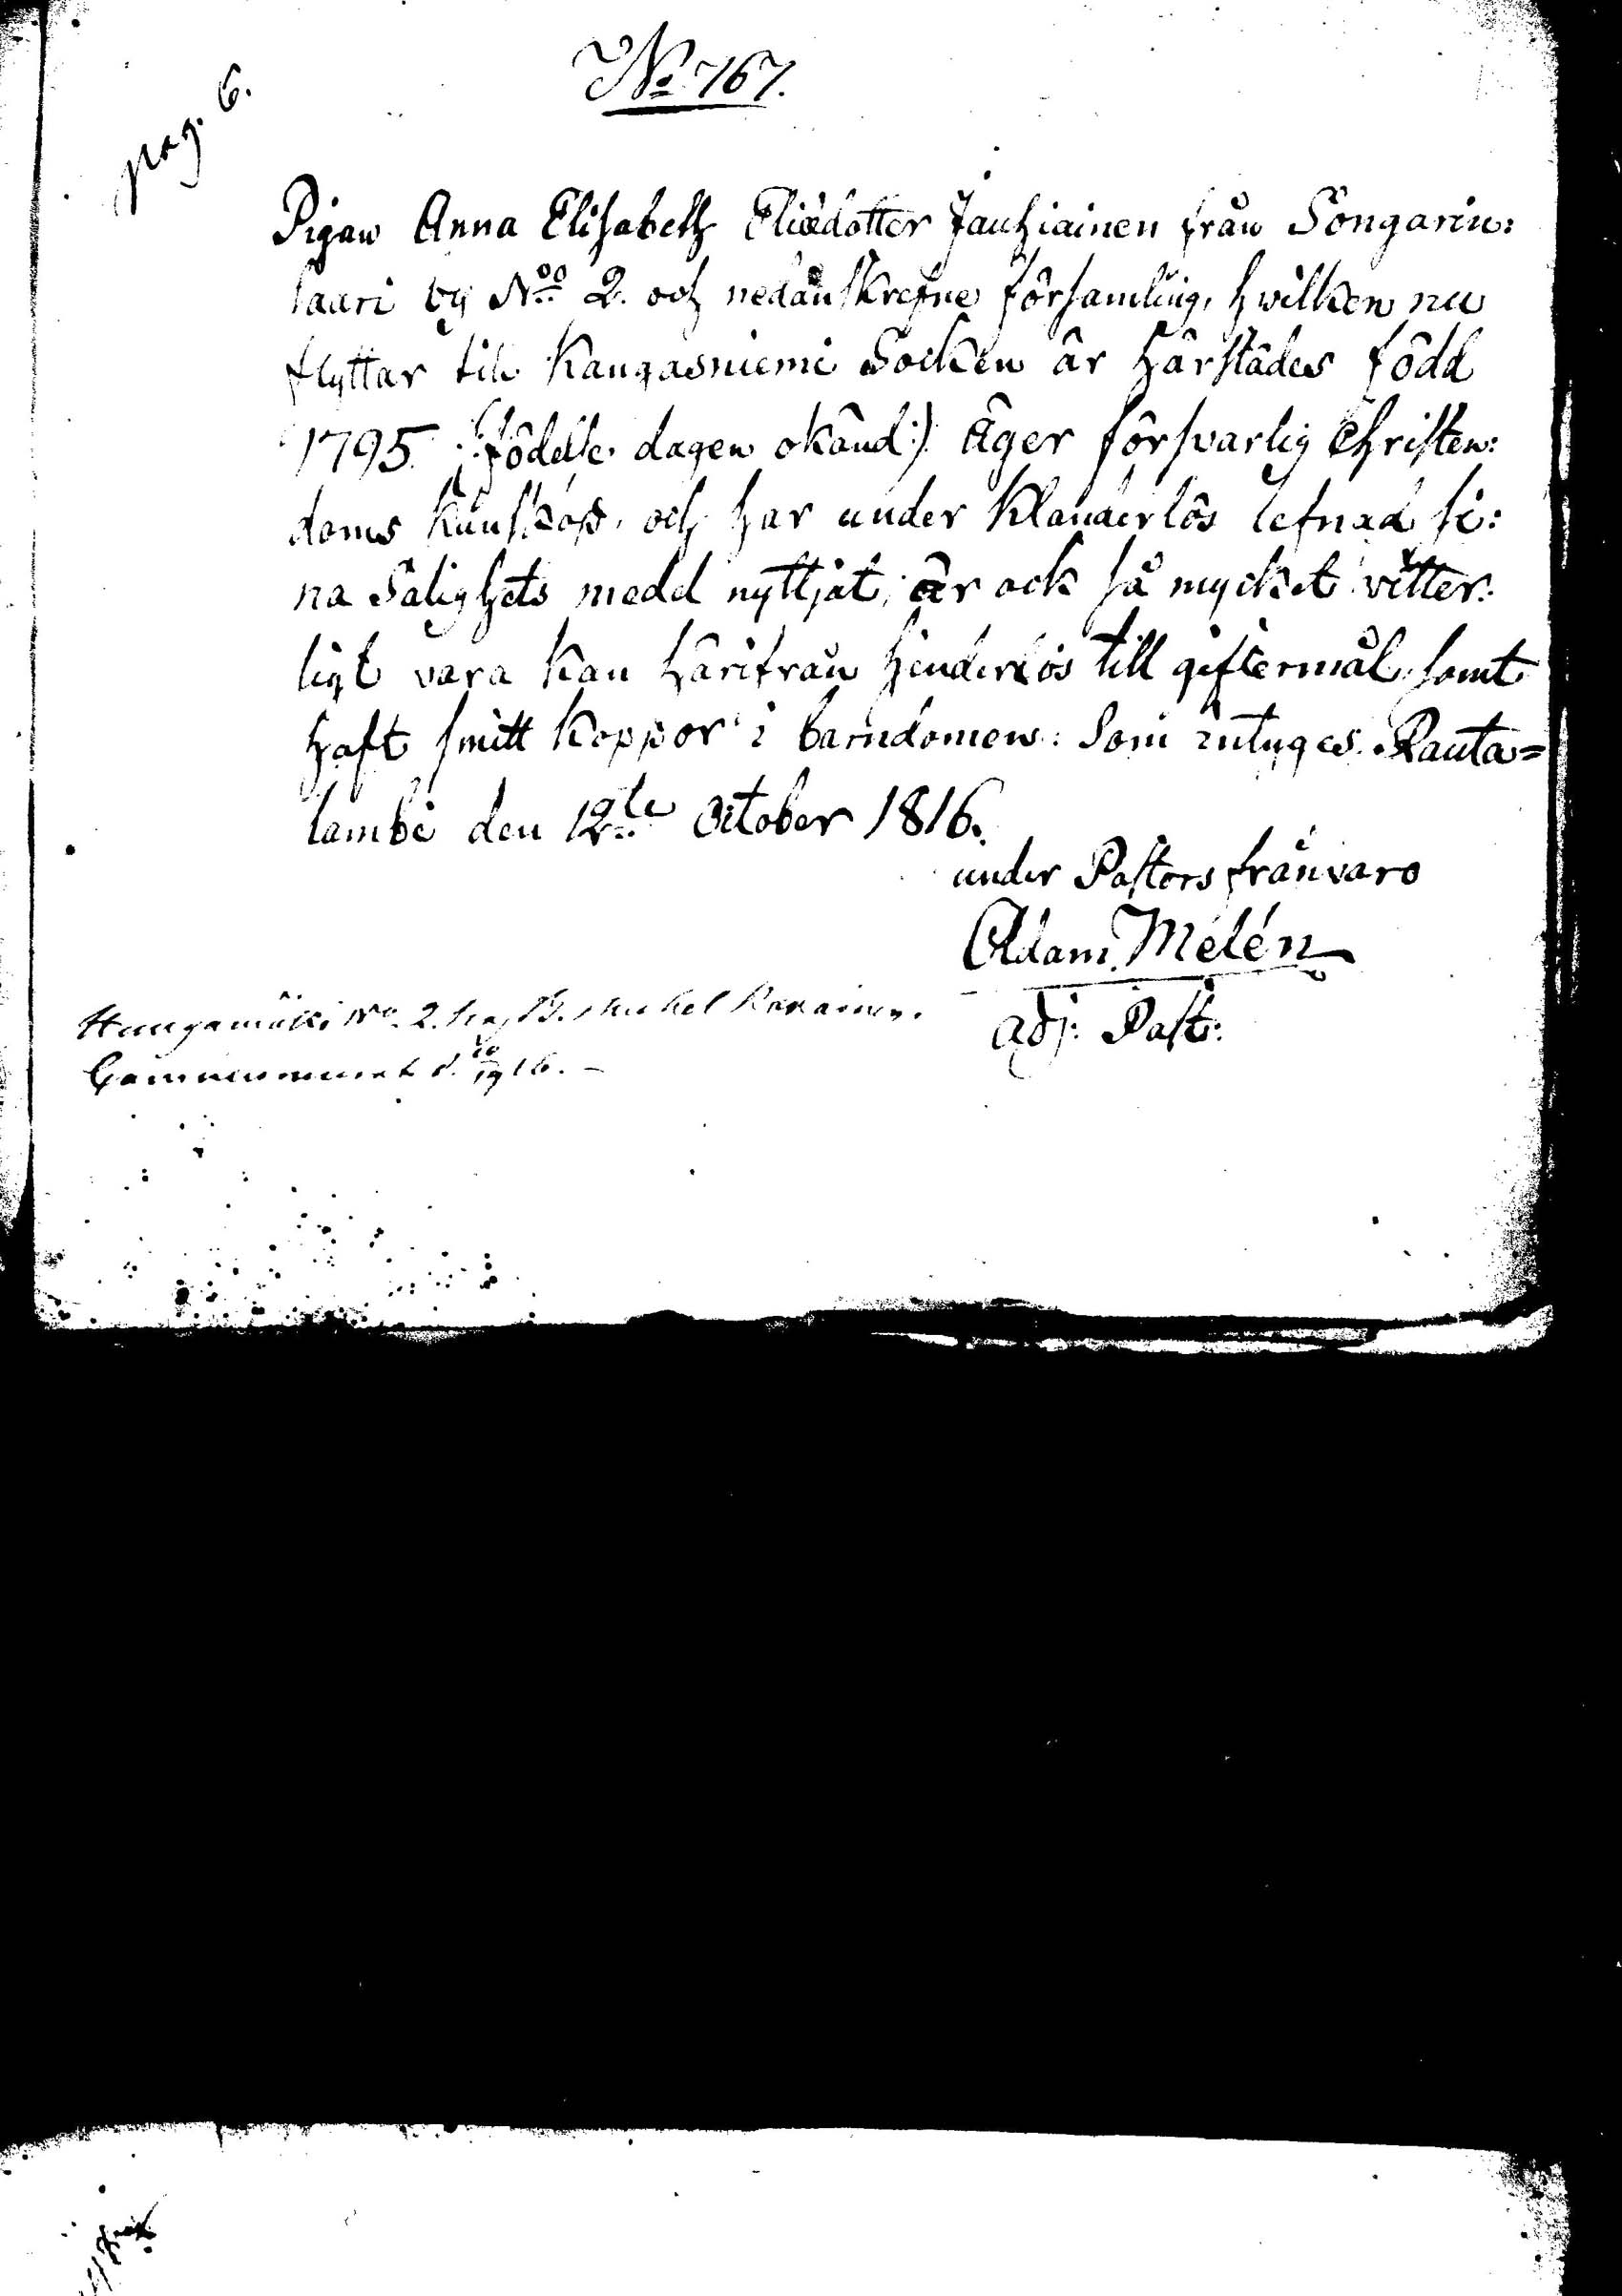 No 767.
pag. 6.
Pigan Anna Elisabeth Eliædotter Jauhiainen från Songarin:
saari by No 2. och nedanskrefne församling, hwilken nu
flyttar till Kangasniemi Socken är härstädes född
1795. (:födelse dagen okänd:) Äger försvarlig Christen:
doms kunskap, och har under Klanderlös lefnad si:
na Salighets medel nyttjat, är ock så mycket vitter:
ligt vara kan härifrån hinderlös till giftermål, samt
haft smitt koppor i barndomen: Som intyges. Rauta=
lambi den 12te October 1816.
under Pastors frånvaro
Adam Melén
Adj: Past:
No 2. hos B. Michel
d. 19/10 16.